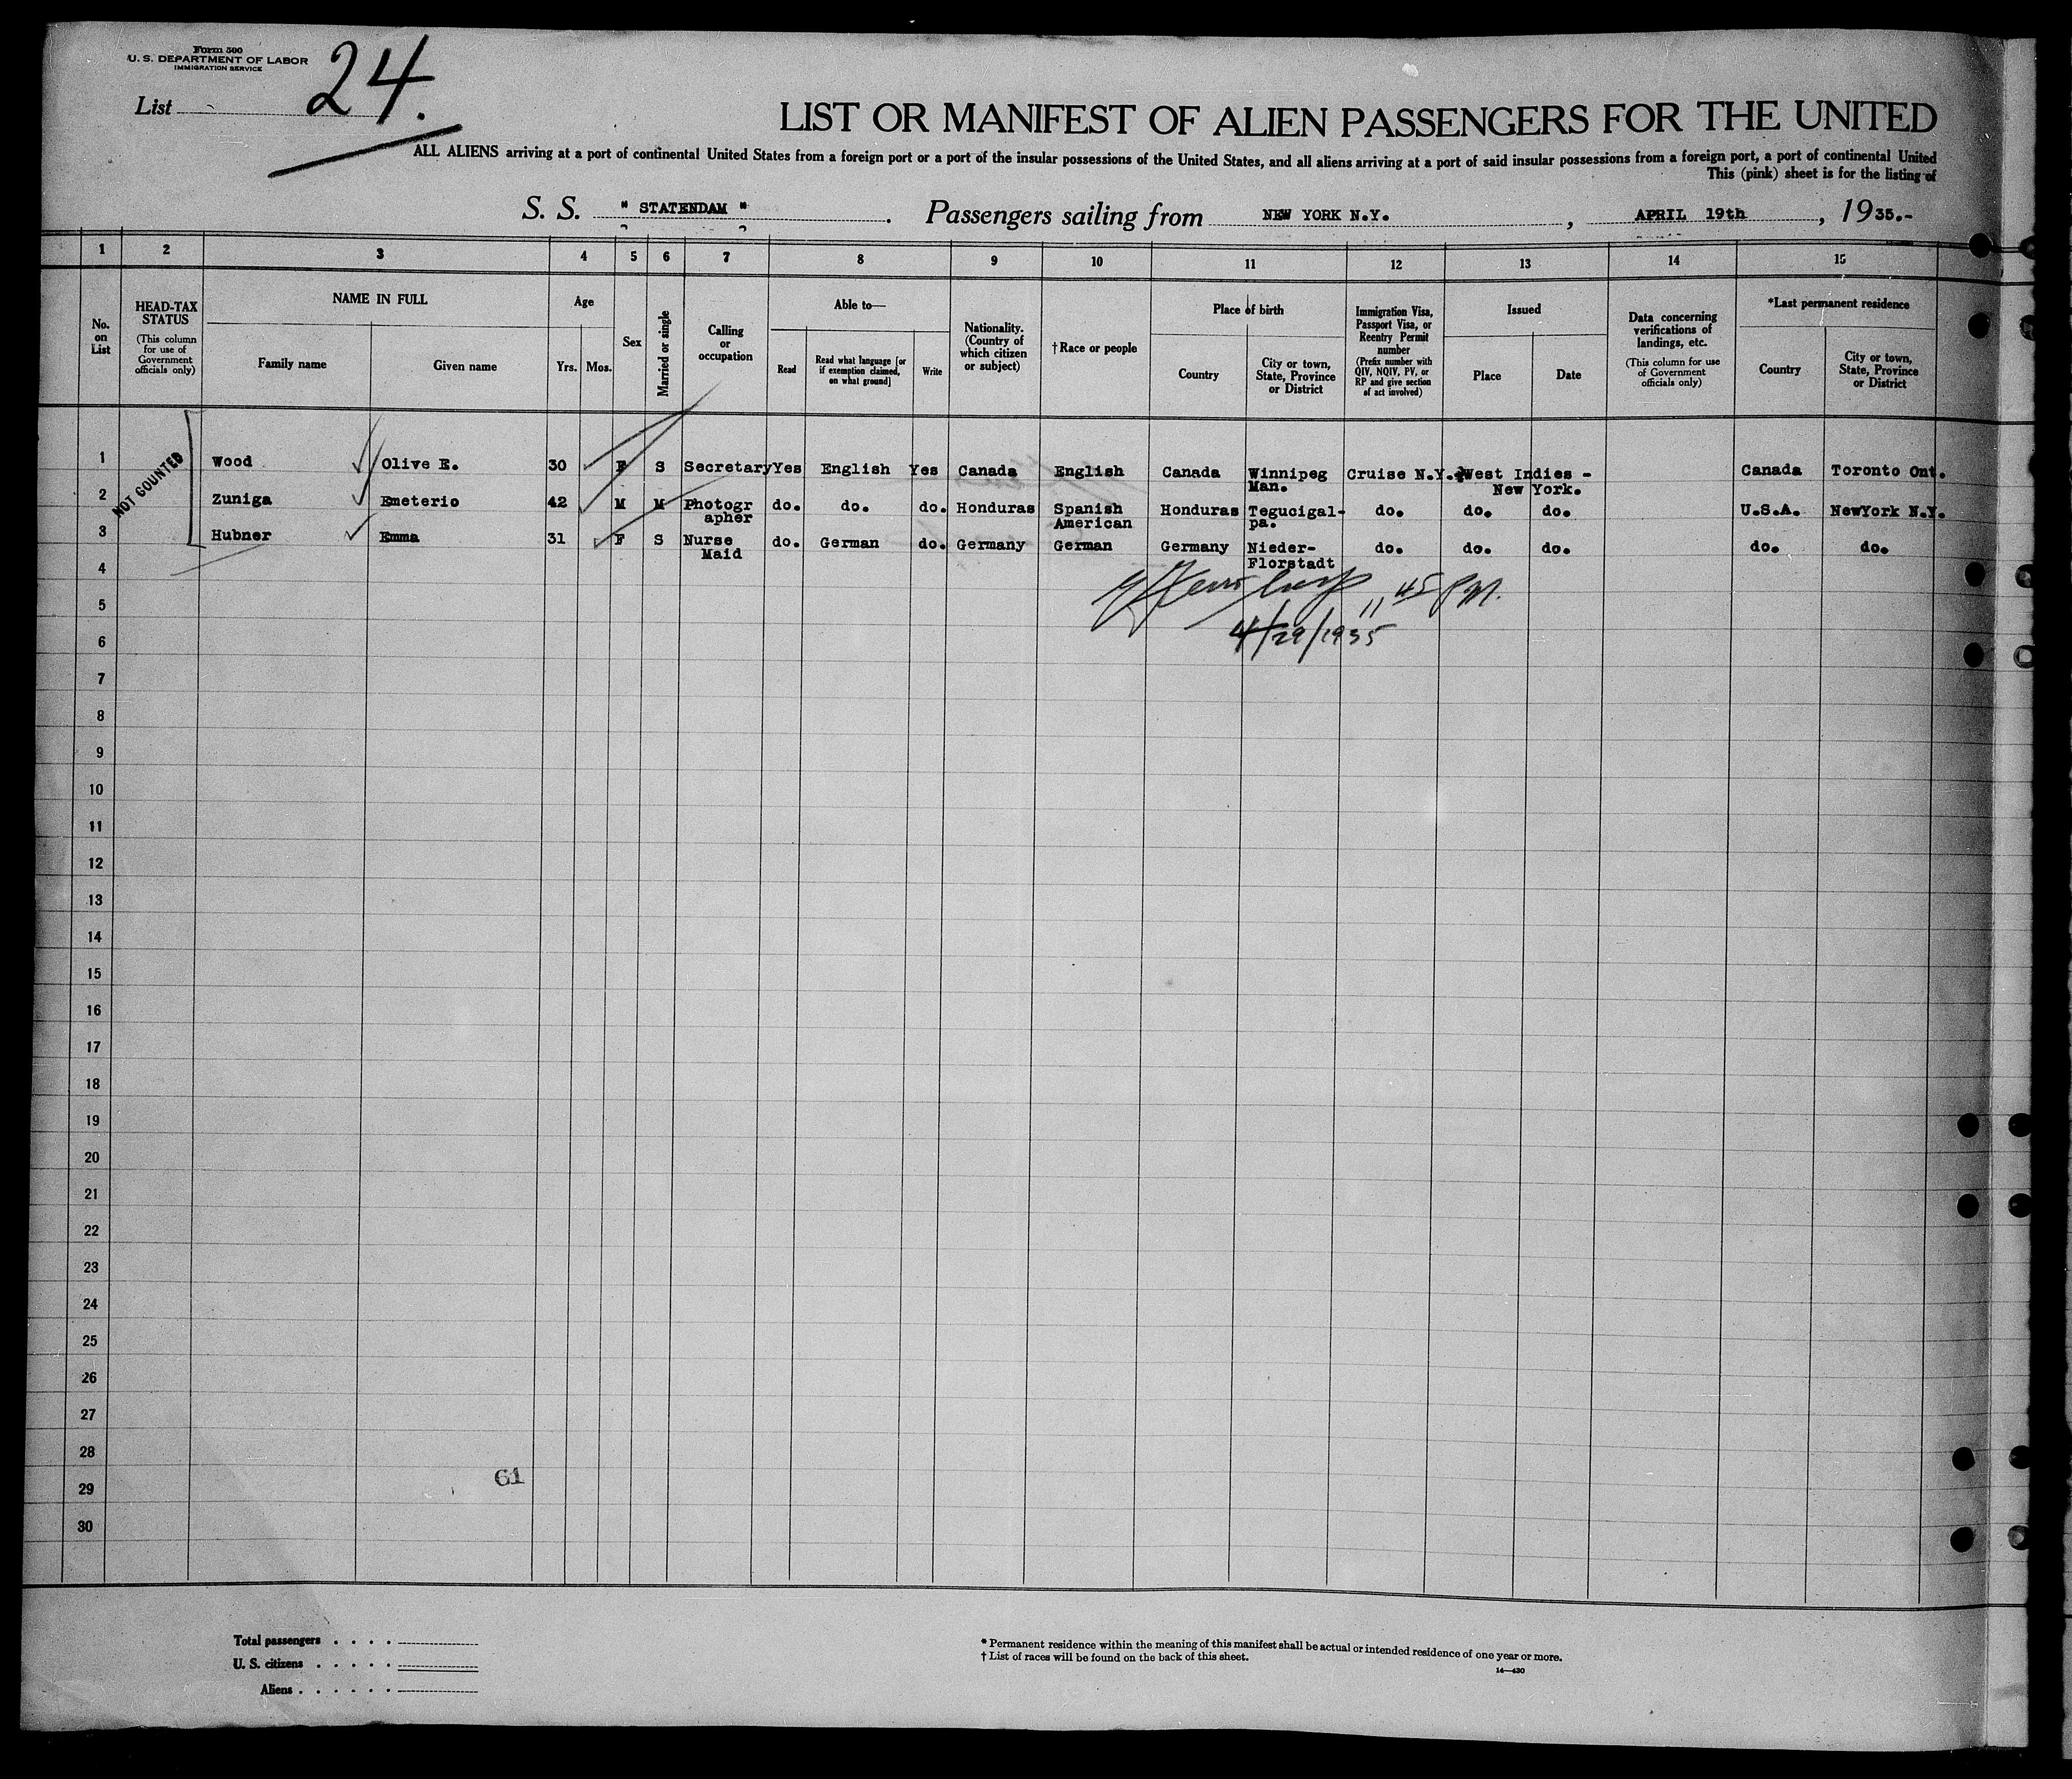 Form 500
U. S. DEPARTMENT OF LABOR
IMMIGRATION SERVICE
List 24.
LIST OR MANIFEST OF ALIEN PASSENGERS FOR THE UNITED
ALL ALIENS arriving at a port of continental United States from a foreign port or a port of the insular possessions of the United States, and all aliens arriving at a port of said insular possessions from a foreign port, a port of continental United
This (pink) sheet is for the listing of
S. S. " STATENDAM " . Passengers sailing from NEW YORK N.Y. , APRIL 19th , 1935.-
1 2 3 4 5 6 7 8 9 10 11 12 13 14 15
No. on List
HEAD-TAX STATUS (This column for use of Government officials only)
NAME IN FULL
Family name
Given name
Age
Yrs. Mos.
Sex
Married or single
Calling or occupation
Able to—
Read
Read what language [or if exemption claimed, on what ground]
Write
Nationality. (Country of which citizen or subject)
†Race or people
Place of birth
Country
City or town, State, Province or District
Immigration Visa, Passport Visa, or Reentry Permit number (Prefix number with QIV, NQIV, PV, or RP and give section of act involved)
Issued
Place
Date
Data concerning verifications of landings, etc. (This column for use of Government officials only)
*Last permanent residence
Country
City or town, State, Province or District
NOT COUNTED
1 Wood Olive E. 30 F S Secretary Yes English Yes Canada English Canada Winnipeg Man. Cruise N.Y. West Indies - New York. Canada Toronto Ont.
2 Zuniga Emeterio 42 M M Photographer do. do. do. Honduras Spanish American Honduras Tegucigal-pa. do. do. do. U.S.A. NewYork N.Y.
3 Hubner Emma 31 F S Nurse Maid do. German do. Germany German Germany Nieder-Florstadt do. do. do. do. do.
11 45 PM.
4/29/1935
4
5
6
7
8
9
10
11
12
13
14
15
16
17
18
19
20
21
22
23
24
25
26
27
28
61
29
30
Total passengers . . . .
U. S. citizens . . . . .
Aliens . . . . . .
* Permanent residence within the meaning of this manifest shall be actual or intended residence of one year or more.
† List of races will be found on the back of this sheet.
14—430